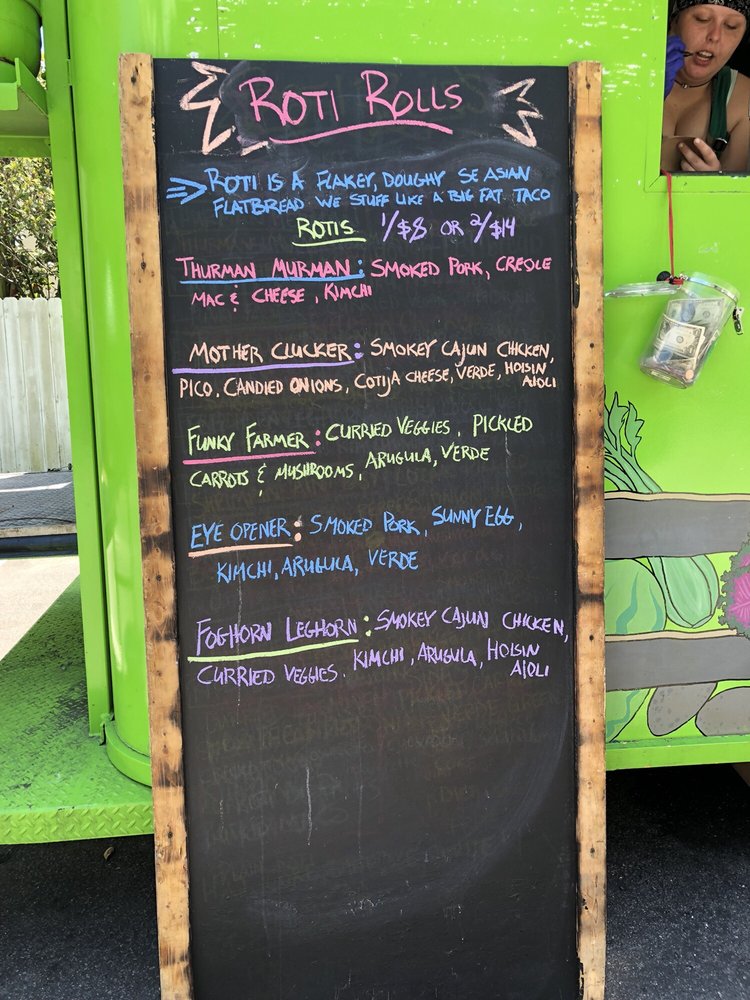 ROTI ROLLS
ROTI IS A FLAKEY, DOUGHY SE ASIAN
FLATBREAD WE STUFF LIKE A BIG FAT TACO
ROTIS 1/$8 OR 2/$14
THURMAN MURMAN: SMOKED PORK, CREOLE
MAC & CHEESE, KIMCHI
MOTHER CLUCKER: SMOKEY CAJUN CHICKEN,
PICO, CANDIED ONIONS, COTIJA CHEESE, VERDE, HOISIN
AIOLI
FUNKY FARMER: CURRIED VEGGIES, PICKLED
CARROTS & MUSHROOMS, ARUGULA, VERDE
EYE OPENER: SMOKED PORK, SUNNY EGG,
KIMCHI, ARUGULA, VERDE
FOGHORN LEGHORN: SMOKEY CAJUN CHICKEN,
CURRIED VEGGIES, KIMCHI, ARUGULA, HOISIN
AIOLI